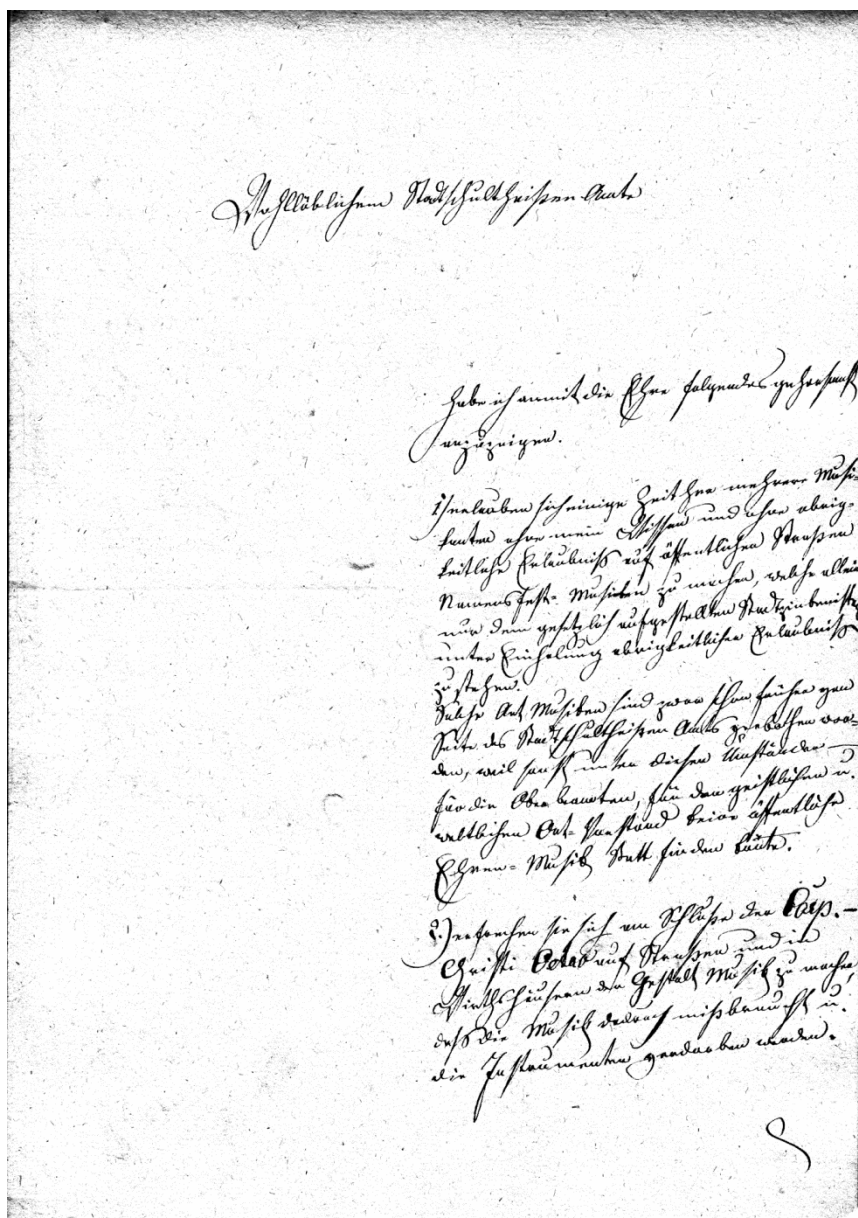 Wohllöblichem Stadtschultheißen Amte
habe ich anmit die Ehre folgendes gehorsamst
anzuzeigen.
1) erlauben sich einige Zeit her mehrere Musi-
kanten ohne mein Wissen und ohne obrig-
keitliche Erlaubniß auf öffentlichen Straßen
Namensfest-Musiken zu machen, welche allein
nur dem gesetzlich aufgestellten
unter Einholung obrigkeitlicher Erlaubniß
zustehen.
Solche Art Musiken sind zwar schon früher von
Seite des Stadtschultheißen Amts verbothen wor-
den, weil sonst unter diesen Umständen
für die Oberbeamten, für den geistlichen u.
weltlichen Ort-Vorstand keine öffentliche
Ehren-Musik Statt finden könte.
2.) erfrechen sie sich am Schluße der Corp.-
Christi Octav auf Straßen und in
Wirthshäusern der Gestalt Musik zu machen,
daß die Musik dadurch mißbraucht u.
die Instrumenten verdorben werden.